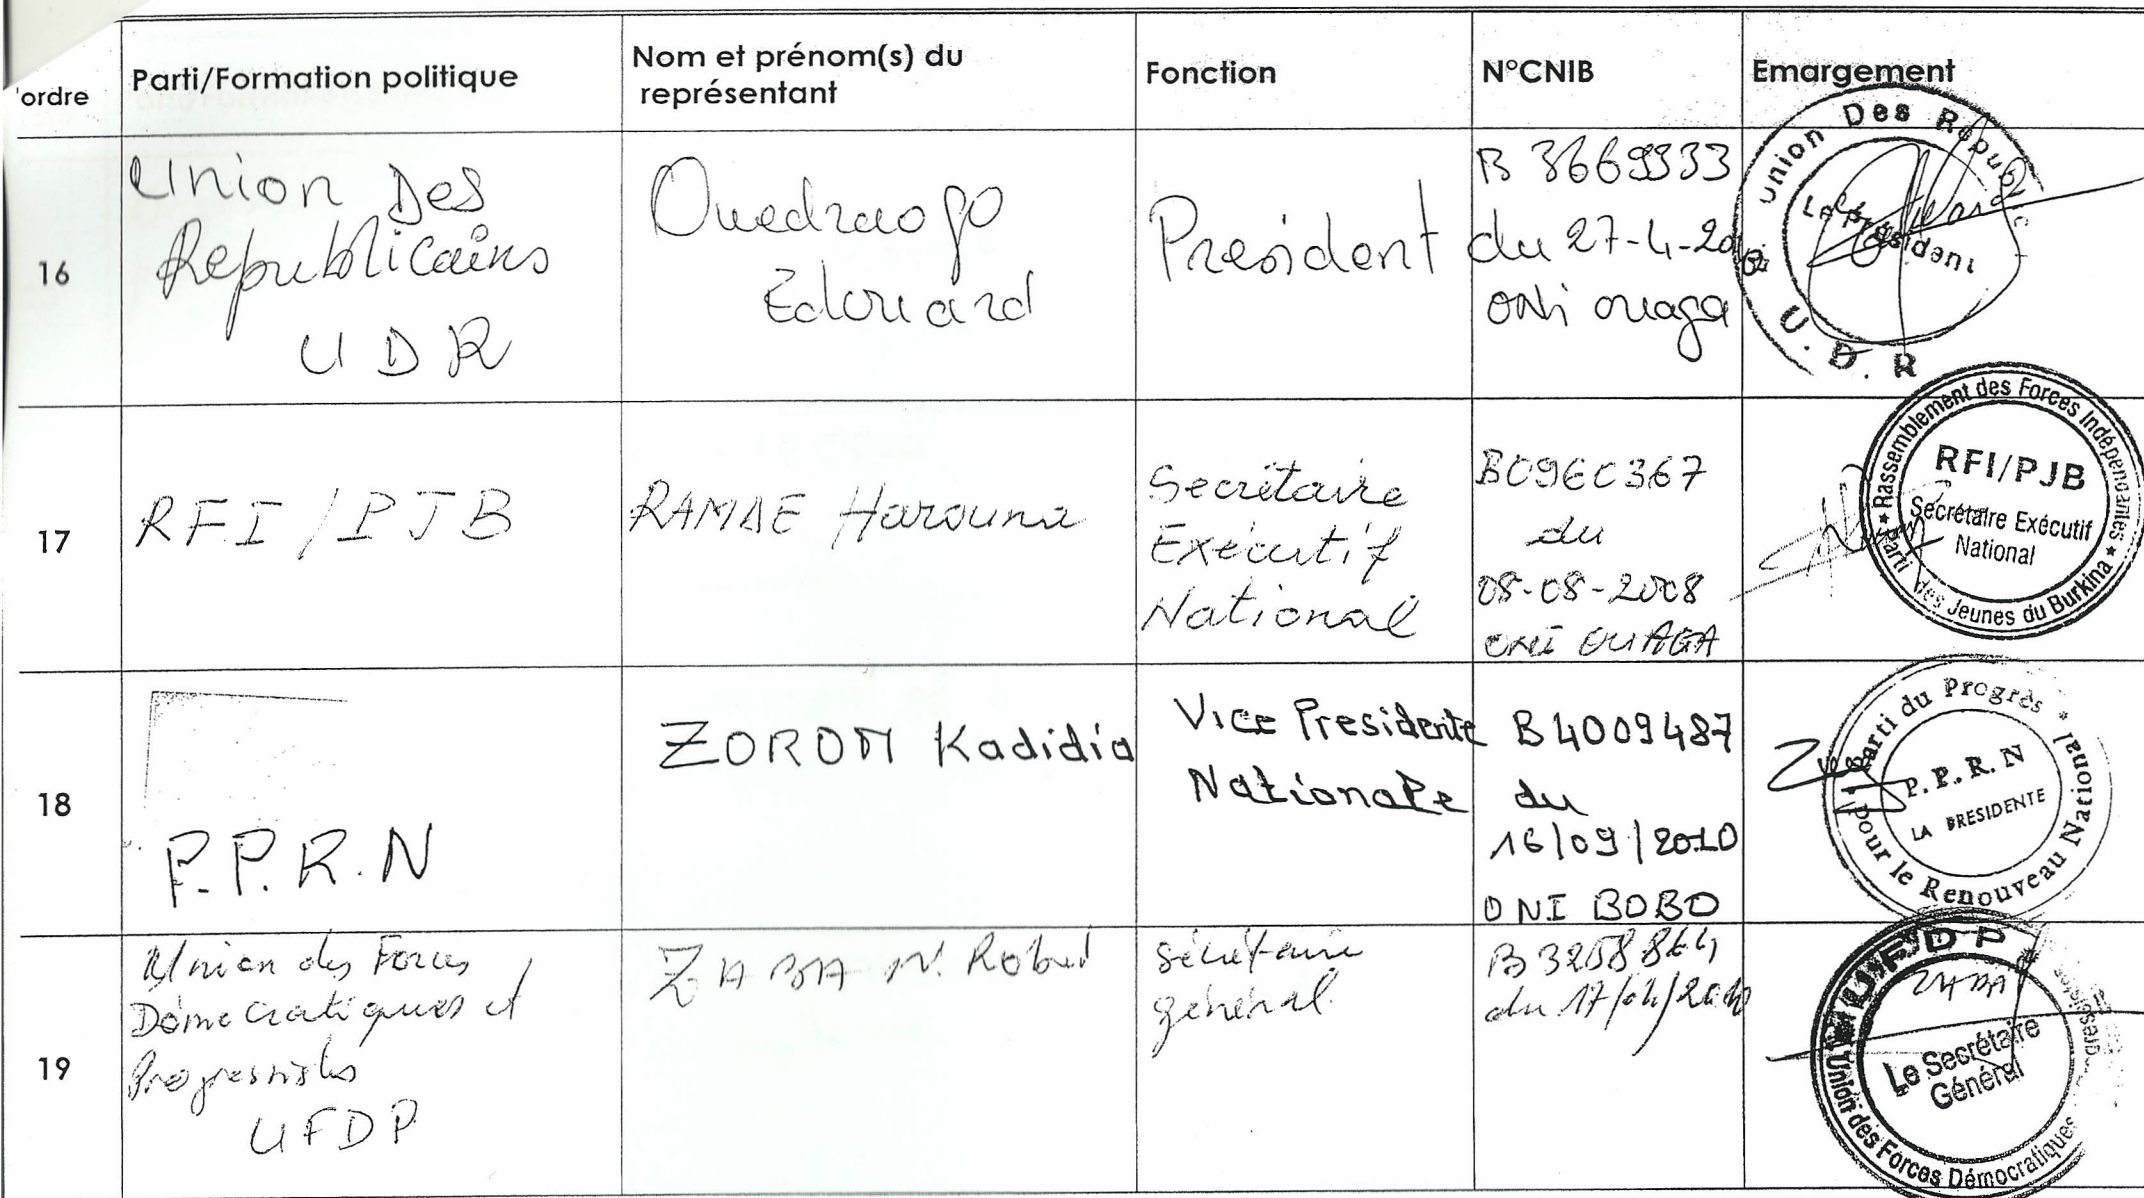 'ordre
Parti/Formation politique
Nom et prénom(s) du
représentant
Fonction
N°CNIB
Emargement
16
Union Des
Republicains
UDR
Ouedraogo
Edouard
President
B 3669933
du 27-4-20
ONI ouaga
Union Des Répub
Le Président
U.D.R
17
RFI/PJB
RAMDE Harouna
Secrétaire
Exécutif
National
B0960367
du
08-08-2008
ONI OUAGA
Rassemblement des Forces Indépendantes
RFI/PJB
Secrétaire Exécutif
National
Parti des Jeunes du Burkina
18
P.P.R.N
ZOROM Kadidia
Vice Presidente
Nationale
B4009487
du
16/09/2010
ONI BOBO
Parti du Progrès
P.P.R.N
LA PRESIDENTE
pour le Renouveau National
19
Union des Forces
Démocratiques et
Progressistes
UFDP
ZABA N. Robert
Sécrétaire
général
B3258864
du 17/04/20
UFDP
ZABA
Le Secrétaire
Général
Union des Forces Démocratiques